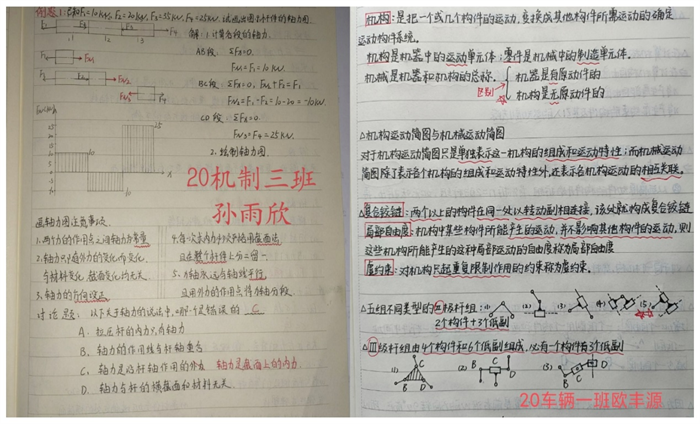 例题1:已知F₁=10kN, F₂=20kN, F₃=35kN, F₄=25kN. 试画出图示杆件的轴力图
解:1.计算各段的轴力.
AB段 ΣFx=0.
FN1=F1=10kN
BC段 ΣFx=0, FN2+F2=F1
FN2=F1-F2=10-20=-10kN.
CD段 ΣFx=0.
FN3=F4=25kN
2.绘制轴力图.
20机制三班
孙雨欣
画轴力图注意事项
1.两个力的作用点之间轴力为常量
2.轴力只随外力的变化而变化,
与材料变化,截面变化均无关.
3.轴力的方向设正
5.力轴永远与轴线平行
且用外力的作用点将轴力分段.
讨论题: 以下关于轴力的说法中,哪一个是错误的 C
A. 拉压杆的内力只有轴力
B. 轴力的作用线与杆轴重合
C. 轴力是沿杆轴作用的外力 轴力是截面上的内力
D. 轴力与杆的横截面和材料无关
机构:是把一个或几个构件的运动,变换成其他构件所需运动的确定
运动构件系统.
构件是机器中的运动单元体;零件是机械中的制造单元体.
机械是机器和机构的总称.
区别
机器是有原动件的
机构是无原动件的
△机构运动简图与机械运动简图
对于机构运动简图只是单独表示这一机构的组成和运动特性;而机械运动
简图除了表示各个机构的组成和运动特性外,还表示各机构运动的相互关联.
△复合铰链:两个以上的构件在同一处以转动副相连接,该处就构成复合铰链
局部自由度:机构中某些构件所能产生的运动,并不影响其他构件的运动,则
这些构件所能产生的这种局部运动的自由度称为局部自由度
虚约束:对机构只起重复限制作用的约束称为虚约束.
△五组不同类型的Ⅱ级杆组:(1) (2) (3) (4) (5)
2个构件+3个低副
△Ⅲ级杆组由4个构件和6个低副组成,必有一个构件有3个低副
(1) (2) (3)
20车辆一班欧丰源